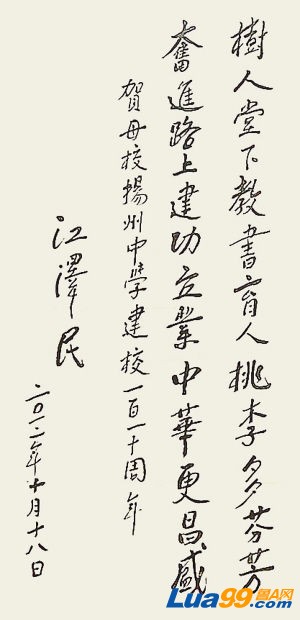 樹人堂下教書育人桃李多芬芳
奮進路上建功立業中華更昌盛
賀母校揚州中學建校一百一十周年
江澤民
二〇一二年十月十八日
Lua99.com
图A网